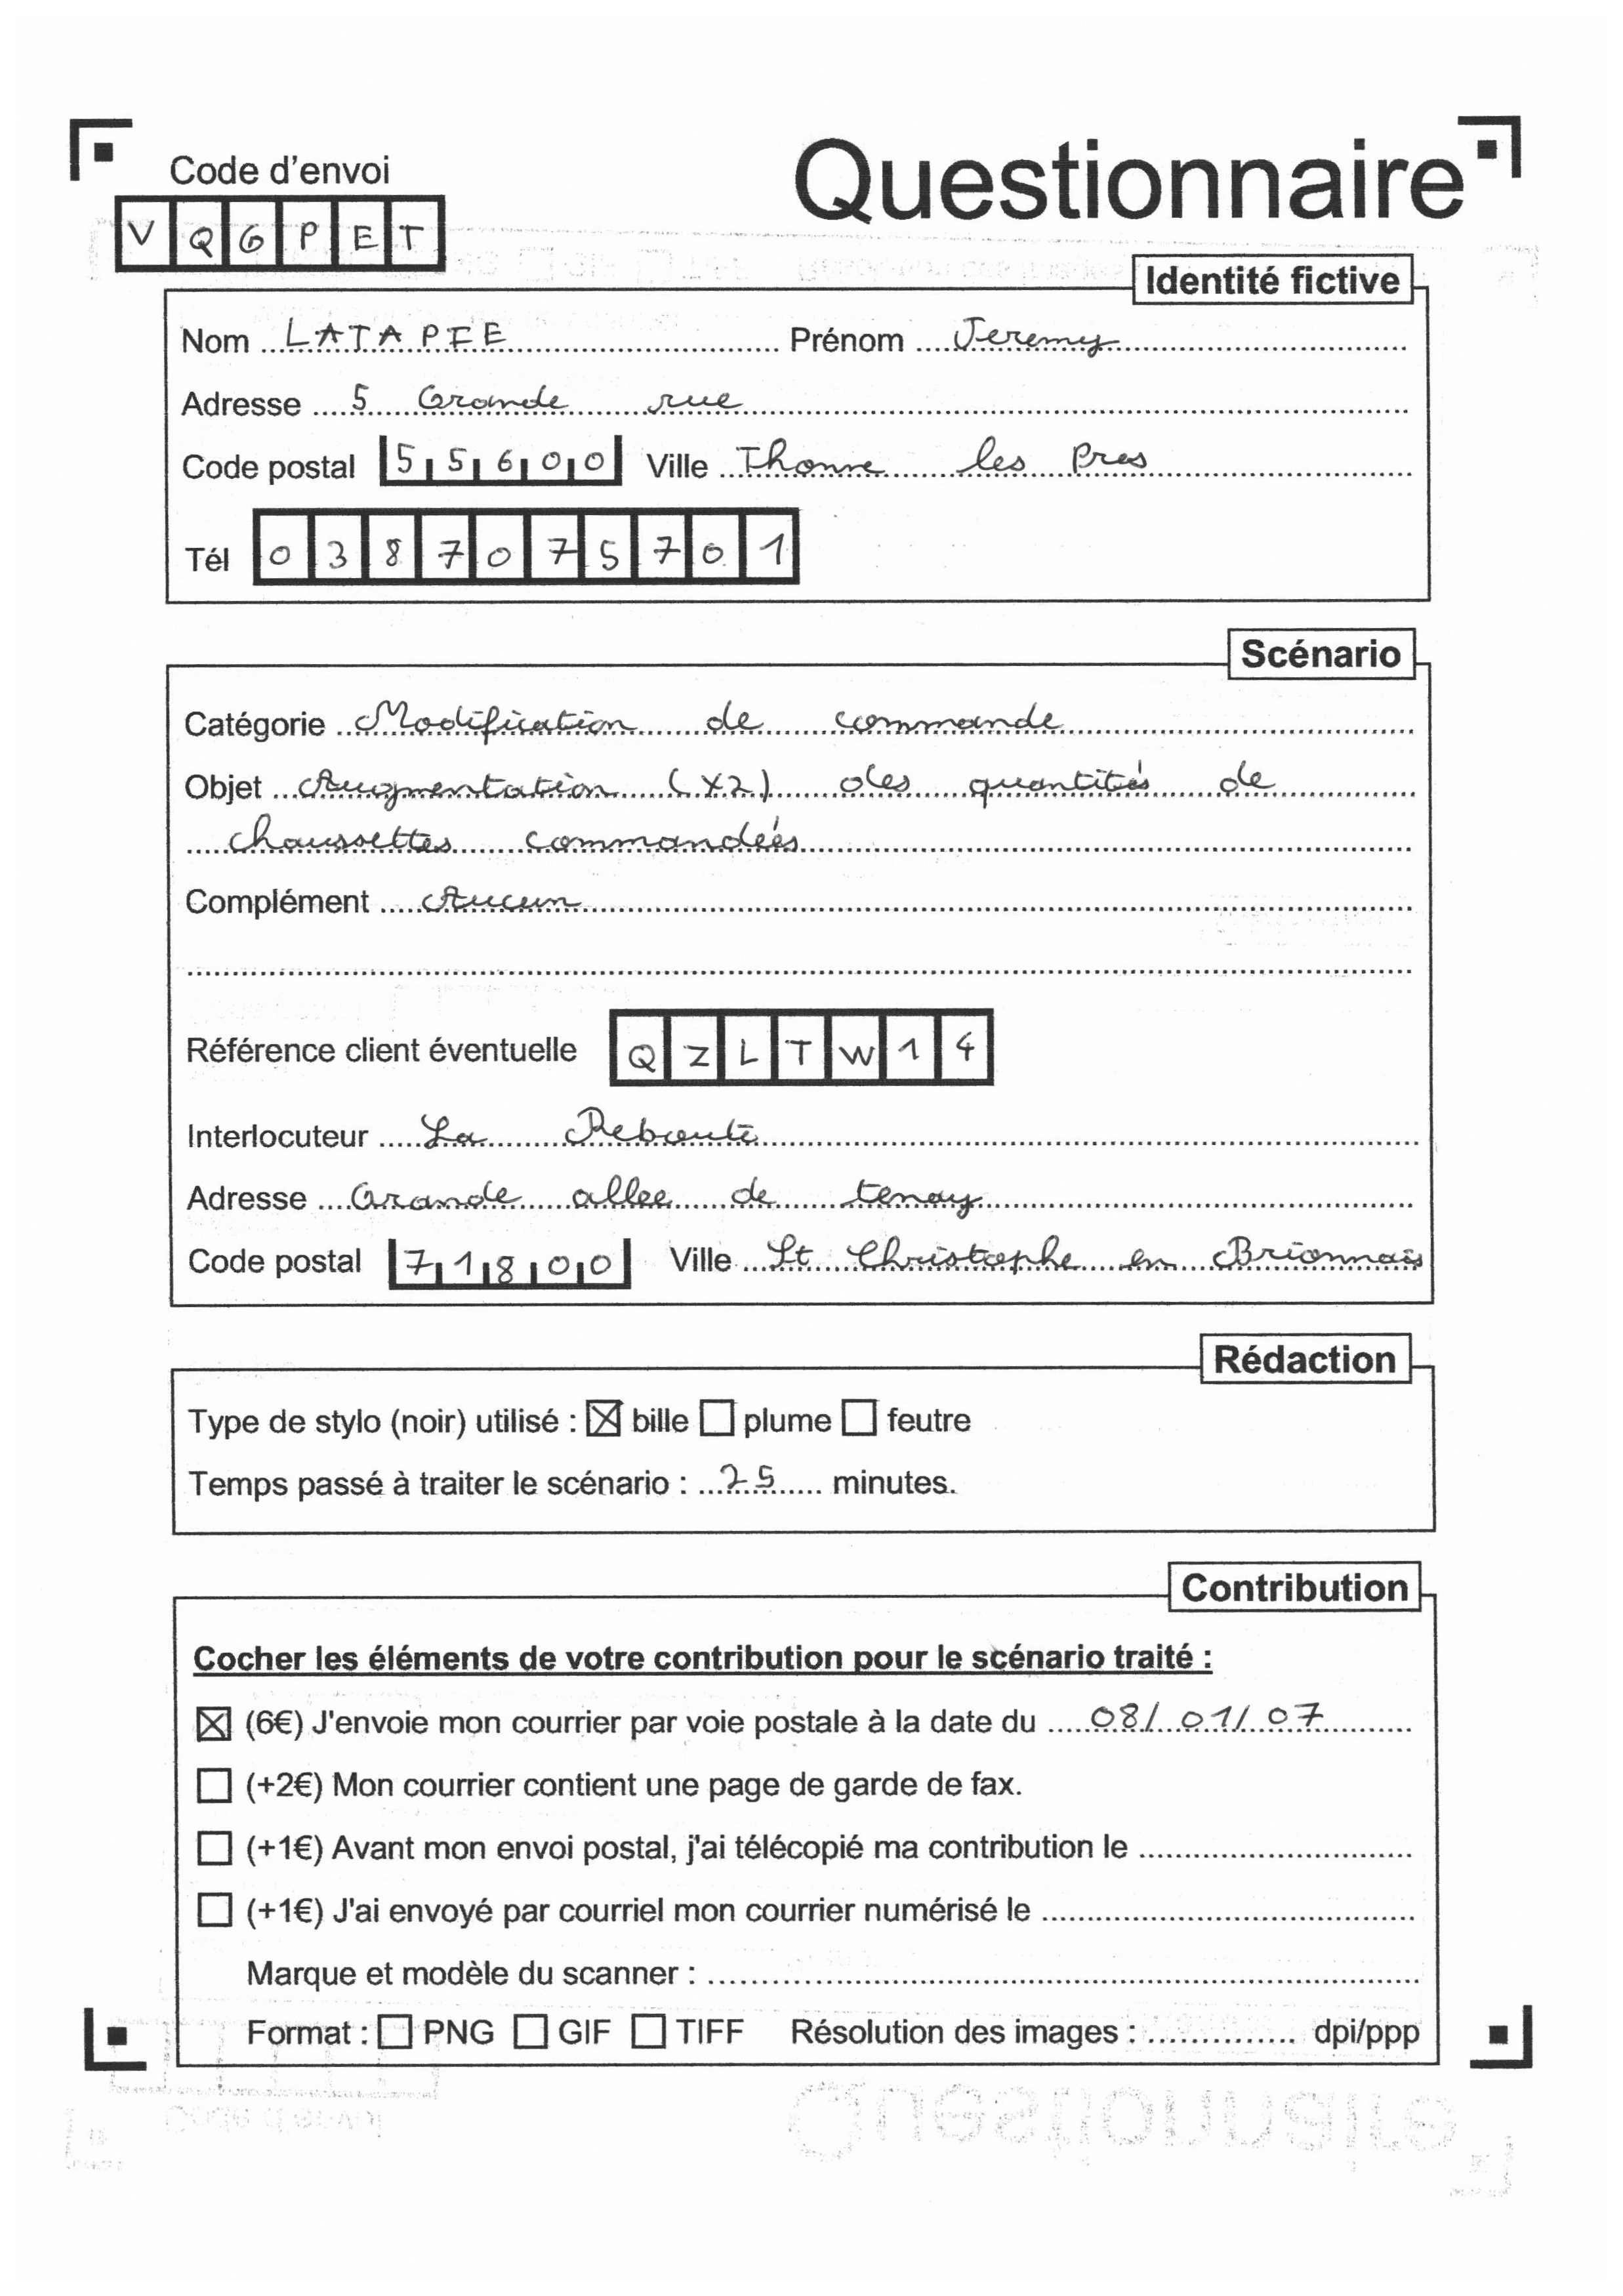 Code d'envoi
Questionnaire
V Q G P E T
Identité fictive
Nom LATAPIE Prénom Jeremy
Adresse 5 Grande rue
Code postal 55600 Ville Thonne les Pres
Tél 0387075701
Scénario
Catégorie Modification de commande
Objet Augmentation (x2) des quantités de
chaussettes commandées
Complément Aucun
Référence client éventuelle QZLTW14
Interlocuteur La Reboute
Adresse Grande allee de tenay
Code postal 71800 Ville St Christophe en Brionnais
Rédaction
Type de stylo (noir) utilisé : ☒ bille ☐ plume ☐ feutre
Temps passé à traiter le scénario : 25 minutes.
Contribution
Cocher les éléments de votre contribution pour le scénario traité :
☒ (6€) J'envoie mon courrier par voie postale à la date du 08/01/07
☐ (+2€) Mon courrier contient une page de garde de fax.
☐ (+1€) Avant mon envoi postal, j'ai télécopié ma contribution le
☐ (+1€) J'ai envoyé par courriel mon courrier numérisé le
Marque et modèle du scanner :
Format : ☐ PNG ☐ GIF ☐ TIFF Résolution des images : dpi/ppp